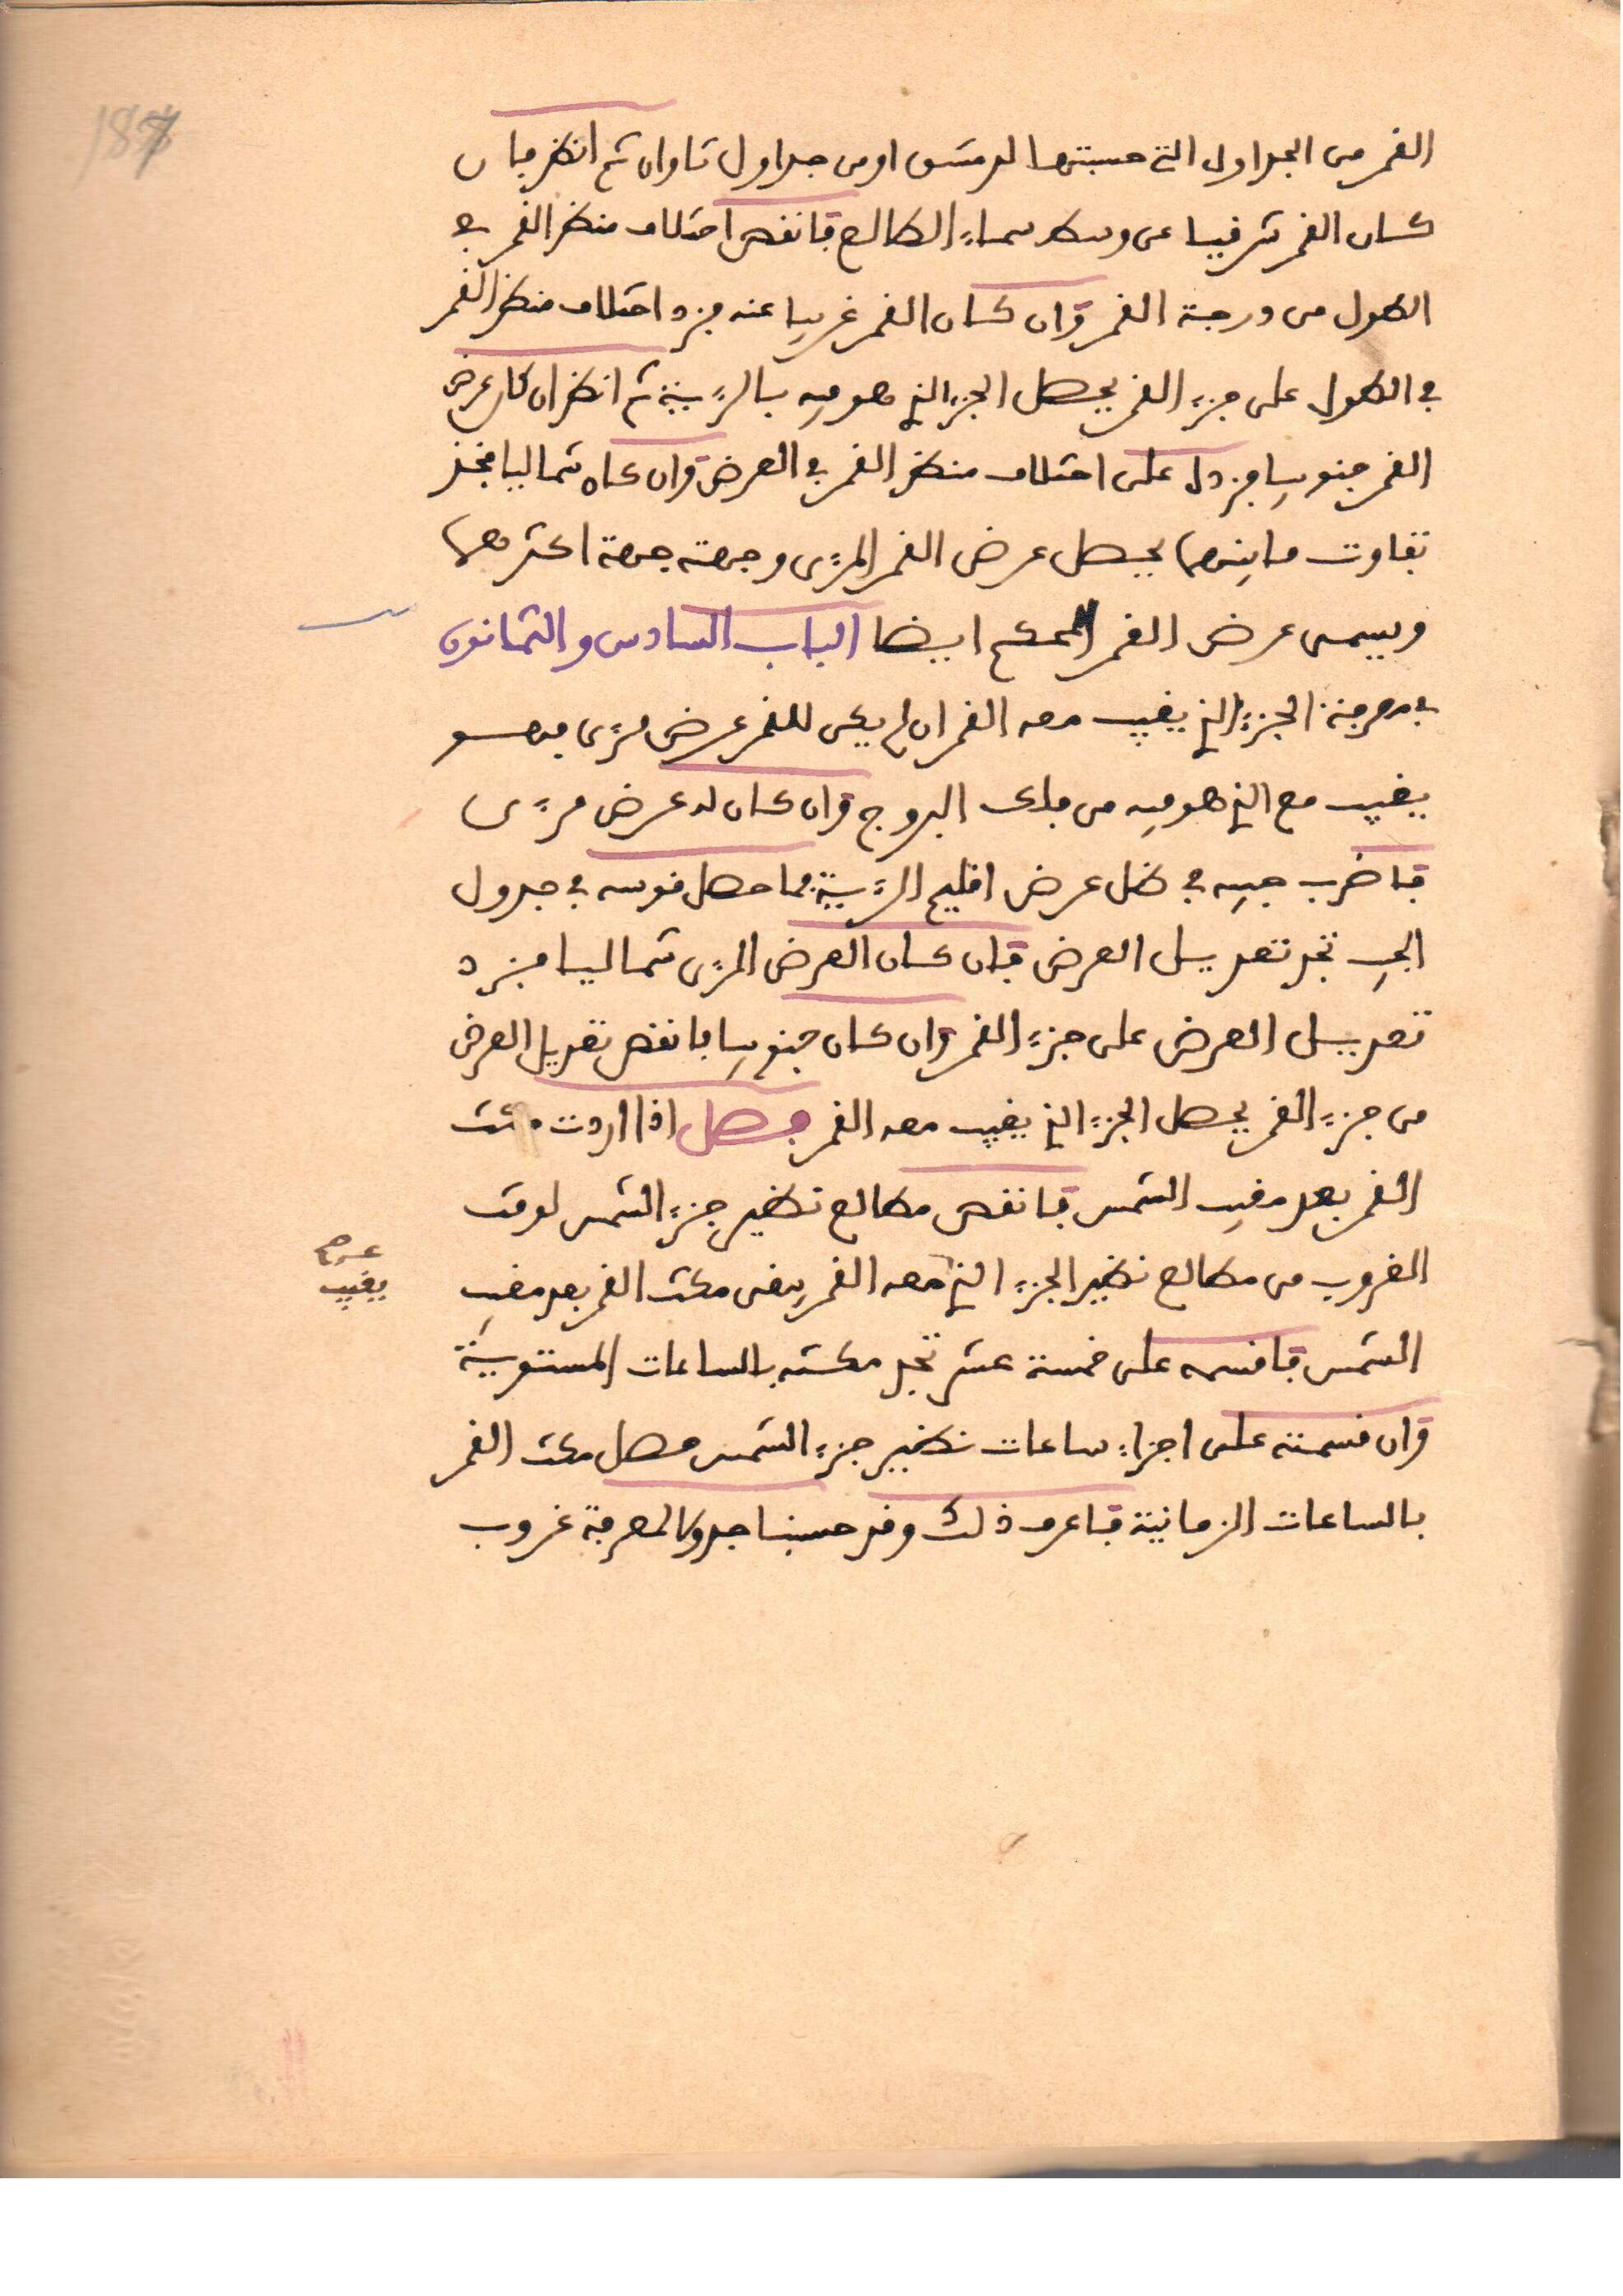 187
القمر من الجداول التي حسبتها لدمشق او من جداول تاوان ثم انظر فان
كان القمر شرفيا عن وسط سماء الطالع فانقص اختلاف منظر القمر في
الطول من درجة القمر وان كان القمر غربيا عنه فزد اختلاف منظر القمر
في الطول على جزء القمر يحصل الجزء الذي هو فيه بالرؤية ثم انظر ان كان عرض
القمر جنوبيا فزده على اختلاف منظر القمر في العرض وان كان شماليا فخذ
تفاوت ما بينهما يحصل عرض القمر المرئي وجهته جهة اكثرهما
ويسمى عرض القمر المحكم ايضا الباب السادس والثمانون
في معرفة الجزء الذي يغيب معه القمر ان لم يكن للقمر عرض مرئي فهو
يغيب مع الذي هو فيه من فلك البروج وان كان له عرض مرئي
فاضرب جيبه في ظل عرض اقليم الرؤية فما حصل قوسه في جدول
الجيب تجد تعديل العرض فان كان العرض المرئي شماليا فزد
تعديل العرض على جزء القمر وان كان جنوبيا فانقص تعديل العرض
من جزء القمر يحصل الجزء الذي يغيب معه القمر فصل اذا اردت مكث
القمر بعد مغيب الشمس فانقص مطالع نظير جزء الشمس لوقت
الغروب من مطالع نظير الجزء الذي معه القمر يبقى مكث القمر بعد مغيب
يغيب
الشمس فاقسمه على خمسة عشر تجد مكثه بالساعات المستوية
وان قسمته على اجزاء ساعات نظير جزء الشمس حصل مكث القمر
بالساعات الزمانية فاعرف ذلك وقد حسبنا جدولا لمعرفة غروب